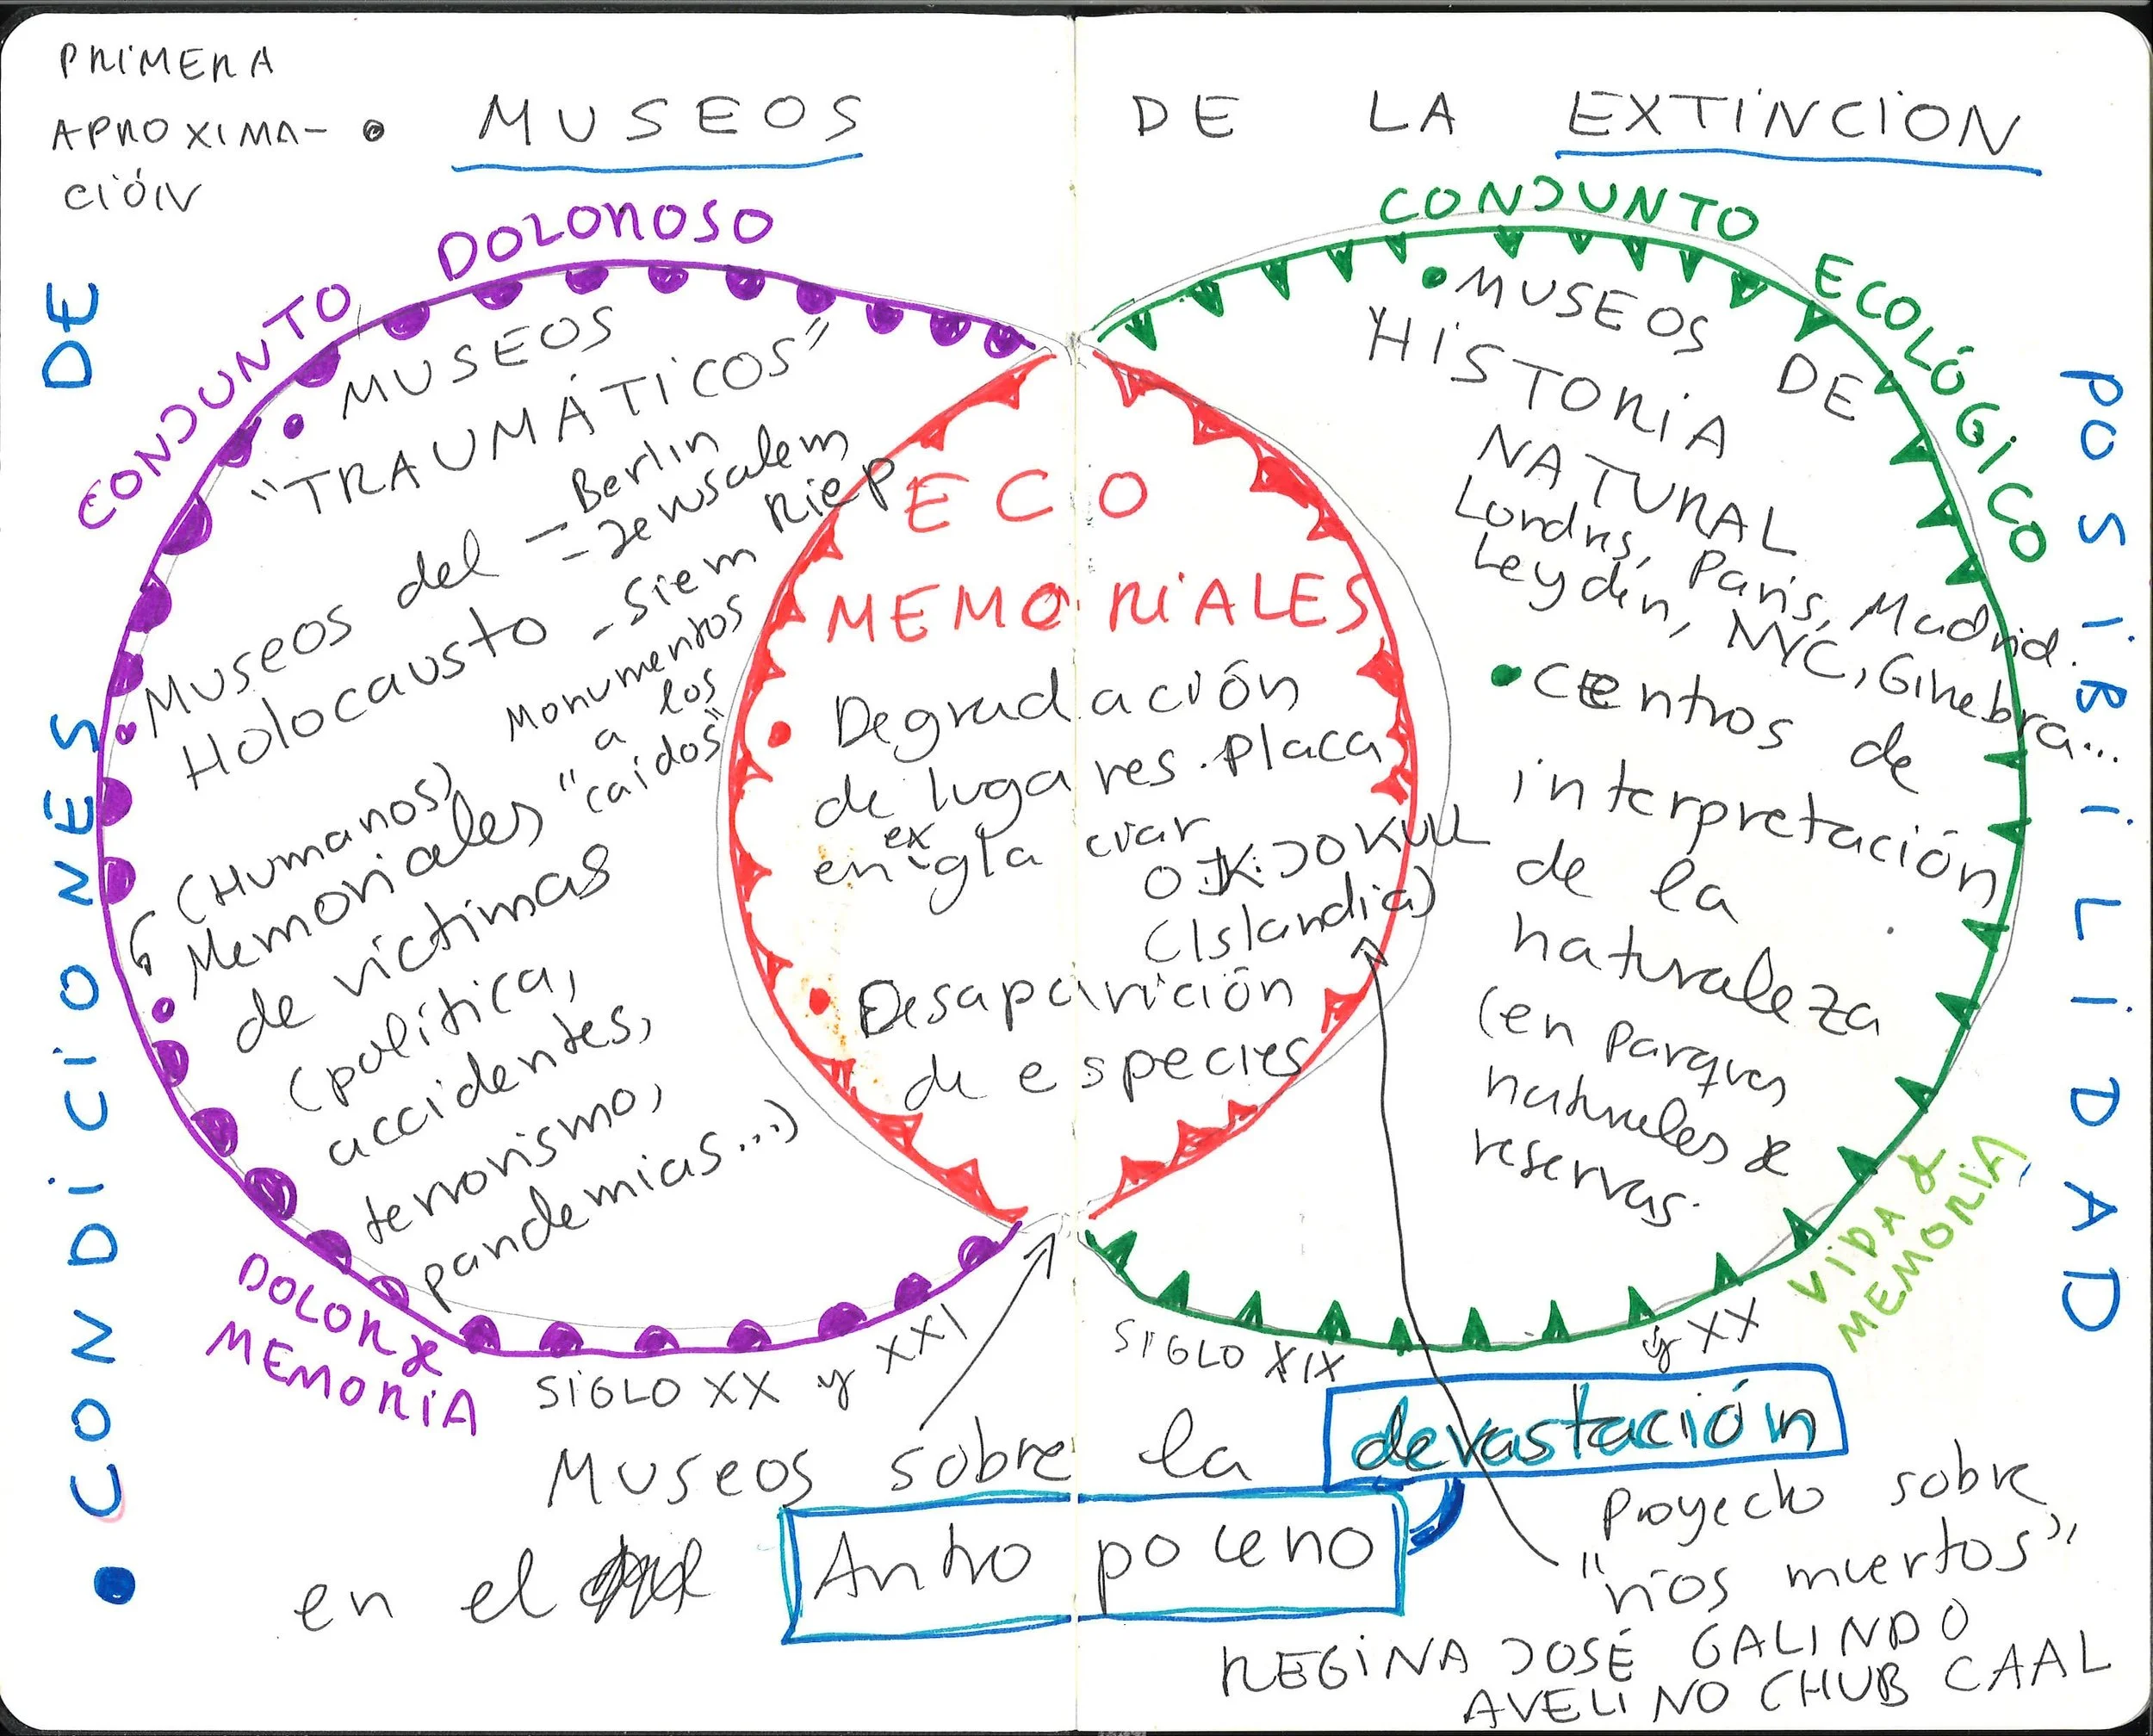 PRIMERA
APROXIMA-
CIÓN
• MUSEOS DE LA EXTINCION
• CONDICIONES DE POSIBILIDAD
CONJUNTO DOLOROSO
• MUSEOS
"TRAUMÁTICOS"
• Museos del
Holocausto
- Berlin
- Jerusalem
- Siem Riep
Monumentos
a los
"caídos"
(Humanos)
• Memoriales
de víctimas
(política,
accidentes,
terrorismo,
pandemias...)
DOLOR &
MEMORIA
SIGLO XX y XXI
ECO
MEMORIALES
• Degradación
de lugares. Placa
en ex glaciar
OKJOKULL
(Islandia)
• Desaparición
de especies
CONJUNTO ECOLÓGICO
• MUSEOS DE
HISTORIA
NATURAL
Londres, París, Madrid.
Leyden, NYC, Ginebra...
• Centros de
interpretación
de la
naturaleza
(en parques
naturales &
reservas.
VIDA &
MEMORIA
SIGLO XIX y XX
Museos sobre la devastación
en el Antropoceno
Proyecto sobre
"ríos muertos",
REGINA JOSÉ GALINDO
AVELINO CHUB CAAL